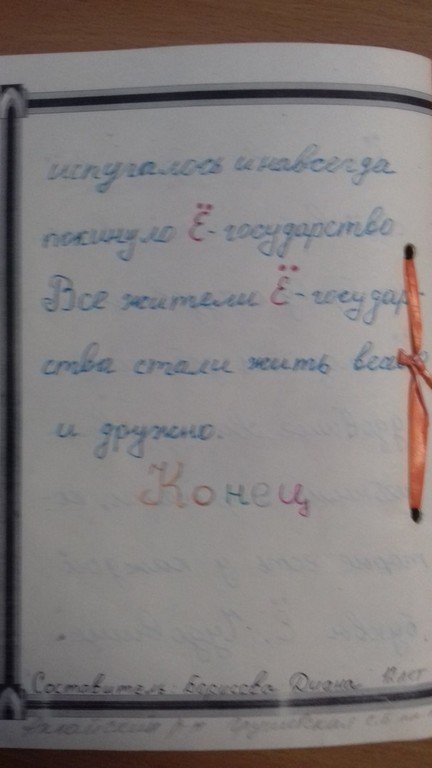 испугалось и навсегда
покинуло Ё-государство
Все жители Ё-государ-
ства стали жить весело
и дружно.
Конец
Составитель: Борисова Диана 12 лет